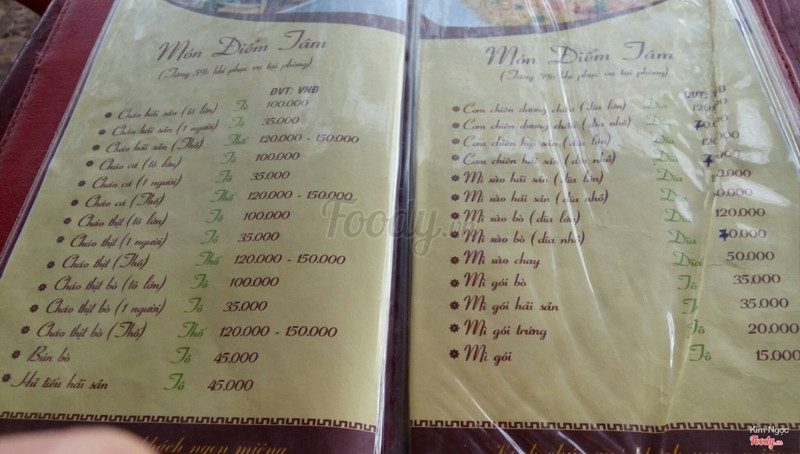 Món Điểm Tâm
(Tăng 5% khi phục vụ tại phòng)
ĐVT: VNĐ
Cháo hải sản (tô lớn) Tô 100.000
Cháo hải sản (1 người) Tô 35.000
Cháo hải sản (Thố) Thố 120.000 - 150.000
Cháo cá (tô lớn) Tô 100.000
Cháo cá (1 người) Tô 35.000
Cháo cá (Thố) Thố 120.000 - 150.000
Cháo thịt (tô lớn) Tô 100.000
Cháo thịt (1 người) Tô 35.000
Cháo thịt (Thố) Tô 120.000 - 150.000
Cháo thịt bò (tô lớn) Tô 100.000
Cháo thịt bò (1 người) Tô 35.000
Cháo thịt bò (Thố) Thố 120.000 - 150.000
Bún bò Tô 45.000
Hủ tiếu hải sản Tô 45.000
khách ngon miệng
Món Điểm Tâm
(Tăng 5% khi phục vụ tại phòng)
ĐVT: VNĐ
Cơm chiên dương châu (dĩa lớn) Dĩa 120.000
Cơm chiên dương châu (dĩa nhỏ) Dĩa 70.000
Cơm chiên hải sản (dĩa lớn) Dĩa
Cơm chiên hải sản (dĩa nhỏ) Dĩa
Mì xào hải sản (dĩa lớn) Dĩa
Mì xào hải sản (dĩa nhỏ) Dĩa
Mì xào bò (dĩa lớn) Dĩa 120.000
Mì xào bò (dĩa nhỏ) Dĩa 70.000
Mì xào chay Dĩa 50.000
Mì gói bò Tô 35.000
Mì gói hải sản Tô 35.000
Mì gói trứng Tô 20.000
Mì gói Tô 15.000
Foody.vn
Kim Ngọc
Foody.vn